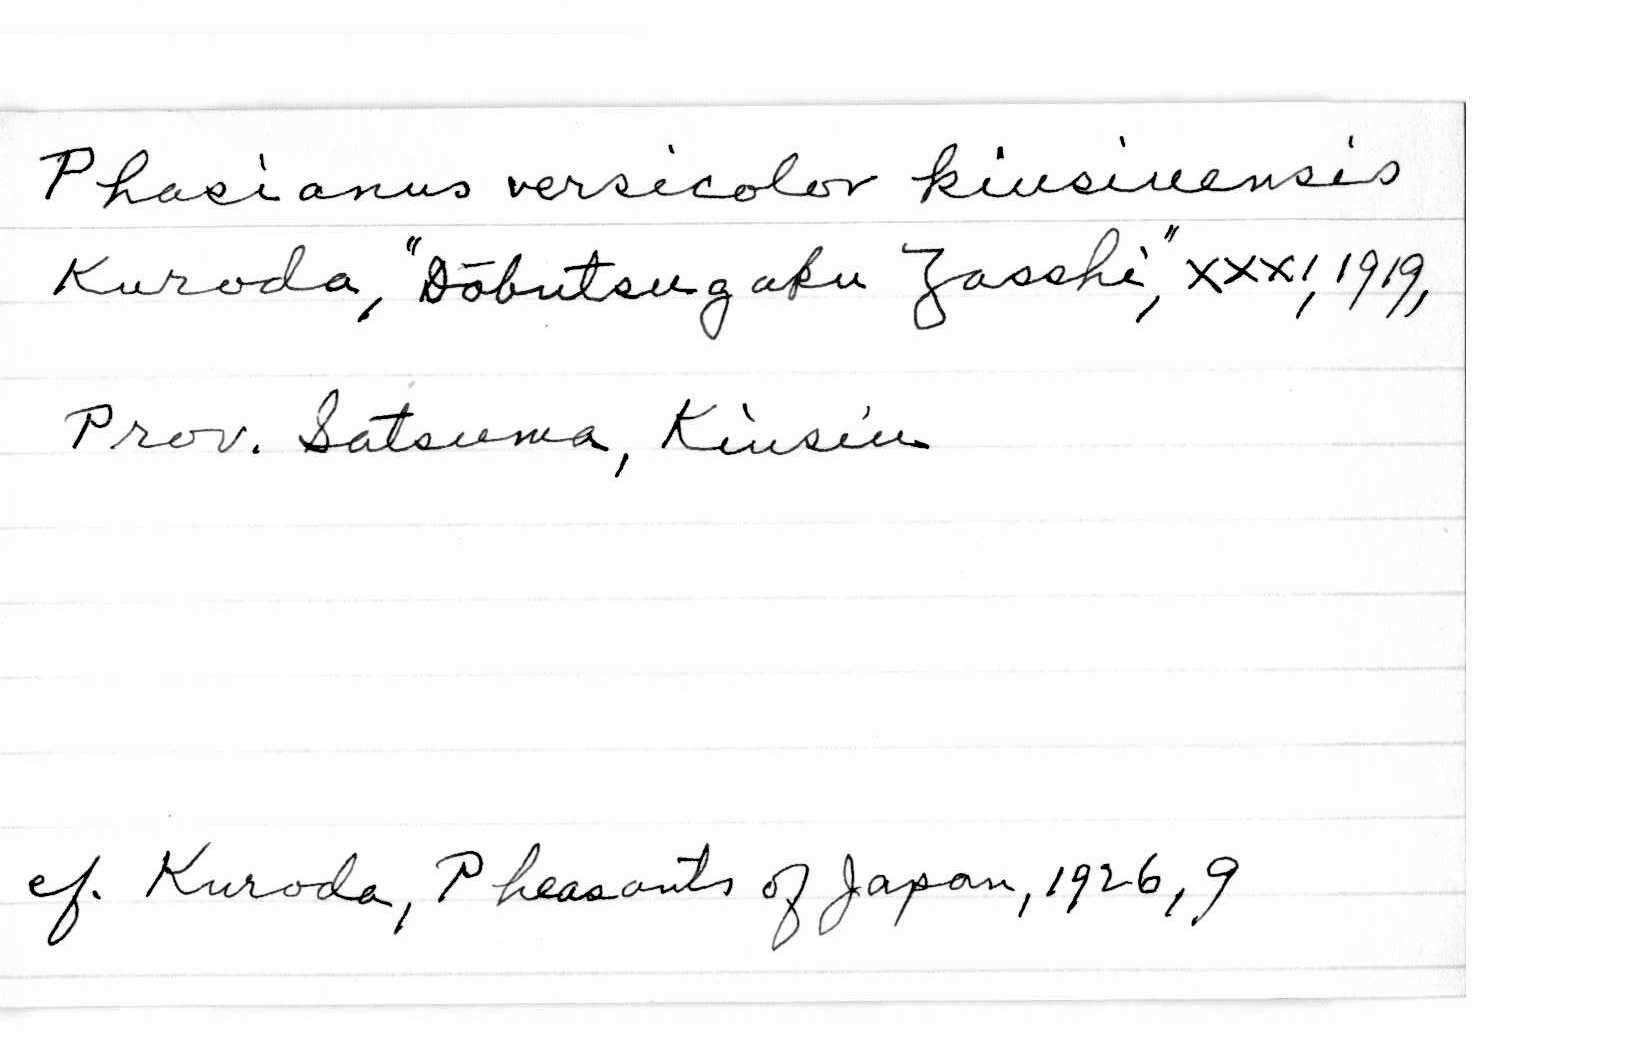 Phasianus versicolor kiusiuensis
Kuroda, "Dōbutsugaku Zasshi," XXXI, 1919,
Prov. Satsuma, Kiusiu
cf. Kuroda, Pheasants of Japan, 1926, 9